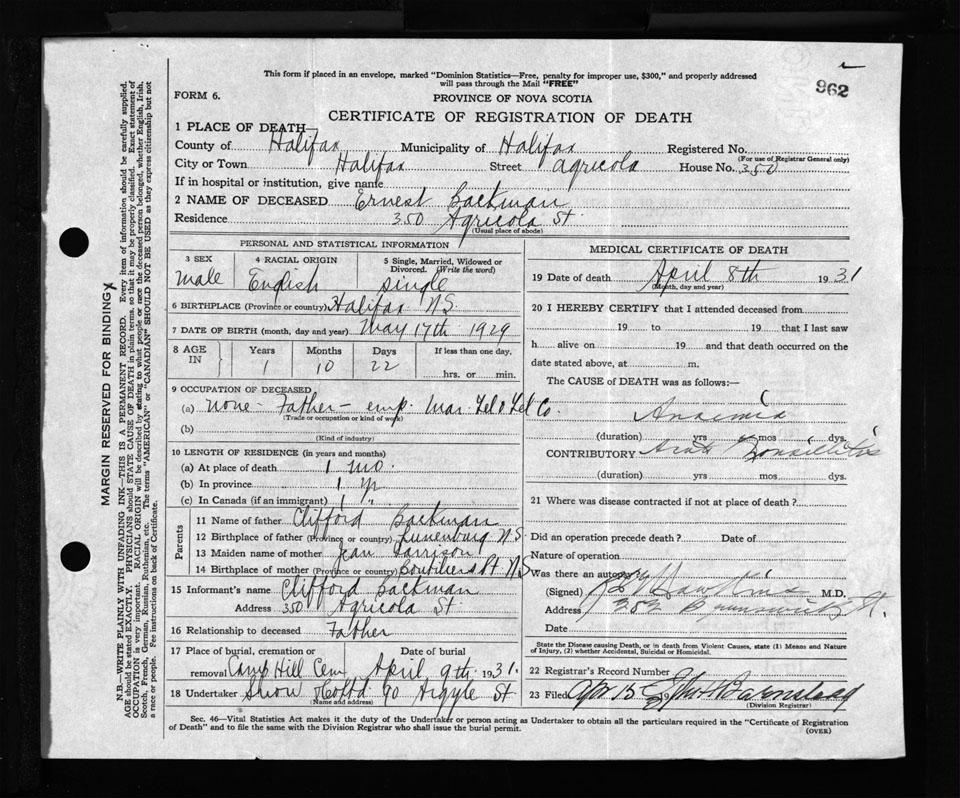 This form if placed in an envelope, marked "Dominion Statistics—Free, penalty for improper use, $300," and properly addressed
will pass through the Mail "FREE"
962
FORM 6.
PROVINCE OF NOVA SCOTIA
CERTIFICATE OF REGISTRATION OF DEATH
1 PLACE OF DEATH—
County of Halifax Municipality of Halifax Registered No.
(For use of Registrar General only)
City or Town Halifax Street Agricola House No. 350
If in hospital or institution, give name
2 NAME OF DECEASED Ernest Backman
Residence 350 Agricola St.
(Usual place of abode)
PERSONAL AND STATISTICAL INFORMATION
3 SEX male
4 RACIAL ORIGIN English
5 Single, Married, Widowed or Divorced. (Write the word) single
6 BIRTHPLACE (Province or country) Halifax N.S.
7 DATE OF BIRTH (month, day and year) May 17th 1929
8 AGE IN Years Months Days If less than one day,
1 10 22 hrs. or min.
9 OCCUPATION OF DECEASED
(a) none - Father - emp. Mar. Tel & Tel Co.
(Trade or occupation or kind of work)
(b)
(Kind of industry)
10 LENGTH OF RESIDENCE (in years and months)
(a) At place of death 1 mo.
(b) In province 1 yr
(c) In Canada (if an immigrant) 1 "
Parents
11 Name of father Clifford Backman
12 Birthplace of father (Province or country) Lunenburg N.S.
13 Maiden name of mother Jean Harrison
14 Birthplace of mother (Province or country) Boutiliers Pt N.S
15 Informant's name Clifford Backman
Address 350 Agricola St.
16 Relationship to deceased Father
17 Place of burial, cremation or removal Camp Hill Cem
Date of burial April 9th 1931.
18 Undertaker Snow & Co Ltd 90 Argyle St
(Name and address)
MEDICAL CERTIFICATE OF DEATH
19 Date of death April 8th 1931
(Month, day and year)
20 I HEREBY CERTIFY that I attended deceased from
19 to 19 that I last saw
h alive on 19 and that death occurred on the
date stated above, at m.
The CAUSE of DEATH was as follows:—
Anaemia
(duration) yrs mos dys.
CONTRIBUTORY Acute Tonsillitis
(duration) yrs mos dys.
21 Where was disease contracted if not at place of death?
Did an operation precede death? Date of
Nature of operation
Was there an autopsy
(Signed) Hawkins M.D.
Address 252 Brunswick St.
Date
State the Disease causing Death, or in death from Violent Causes, state (1) Means and Nature
of Injury, (2) whether Accidental, Suicidal or Homicidal.
22 Registrar's Record Number
23 Filed Apr 15 19 Barnstead
(Division Registrar)
Sec. 46—Vital Statistics Act makes it the duty of the Undertaker or person acting as Undertaker to obtain all the particulars required in the "Certificate of Registration
of Death" and to file the same with the Division Registrar who shall issue the burial permit.
(OVER)
MARGIN RESERVED FOR BINDING
N.B.—WRITE PLAINLY WITH UNFADING INK—THIS IS A PERMANENT RECORD. Every item of information should be carefully supplied.
AGE should be stated EXACTLY. PHYSICIANS should STATE CAUSE OF DEATH in plain terms, so that it may be properly classified. Exact statement of
OCCUPATION is very important. RACIAL ORIGIN will be described by stating to what people or race the deceased person belonged, whether English, Irish,
Scotch, French, German, Russian, Ruthenian, etc. The terms "AMERICAN" or "CANADIAN" SHOULD NOT BE USED as they express citizenship but not
a race or people. See instructions on back of Certificate.